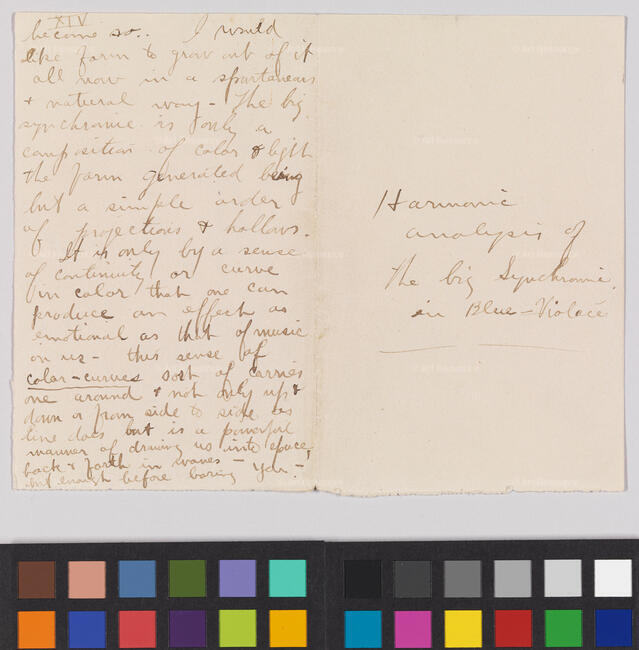 XIV
become so.. I would
like form to grow out of it
all now in a spontaneous
& natural way - The big
synchromie is only a
composition of color & light
the form generated being
but a simple order
of projections & hollows.
It is only by a sense
of continuity or curve
in color that one can
produce an effect as
emotional as that of music
on us - this sense of
color-curves sort of carries
one around & not only up &
down or from side to side as
line does but is a powerful
manner of drawing us into space,
back & forth in waves -
but enough before boring you -
Harmonic
analysis of
the big Synchromie
in Blue-Violacé